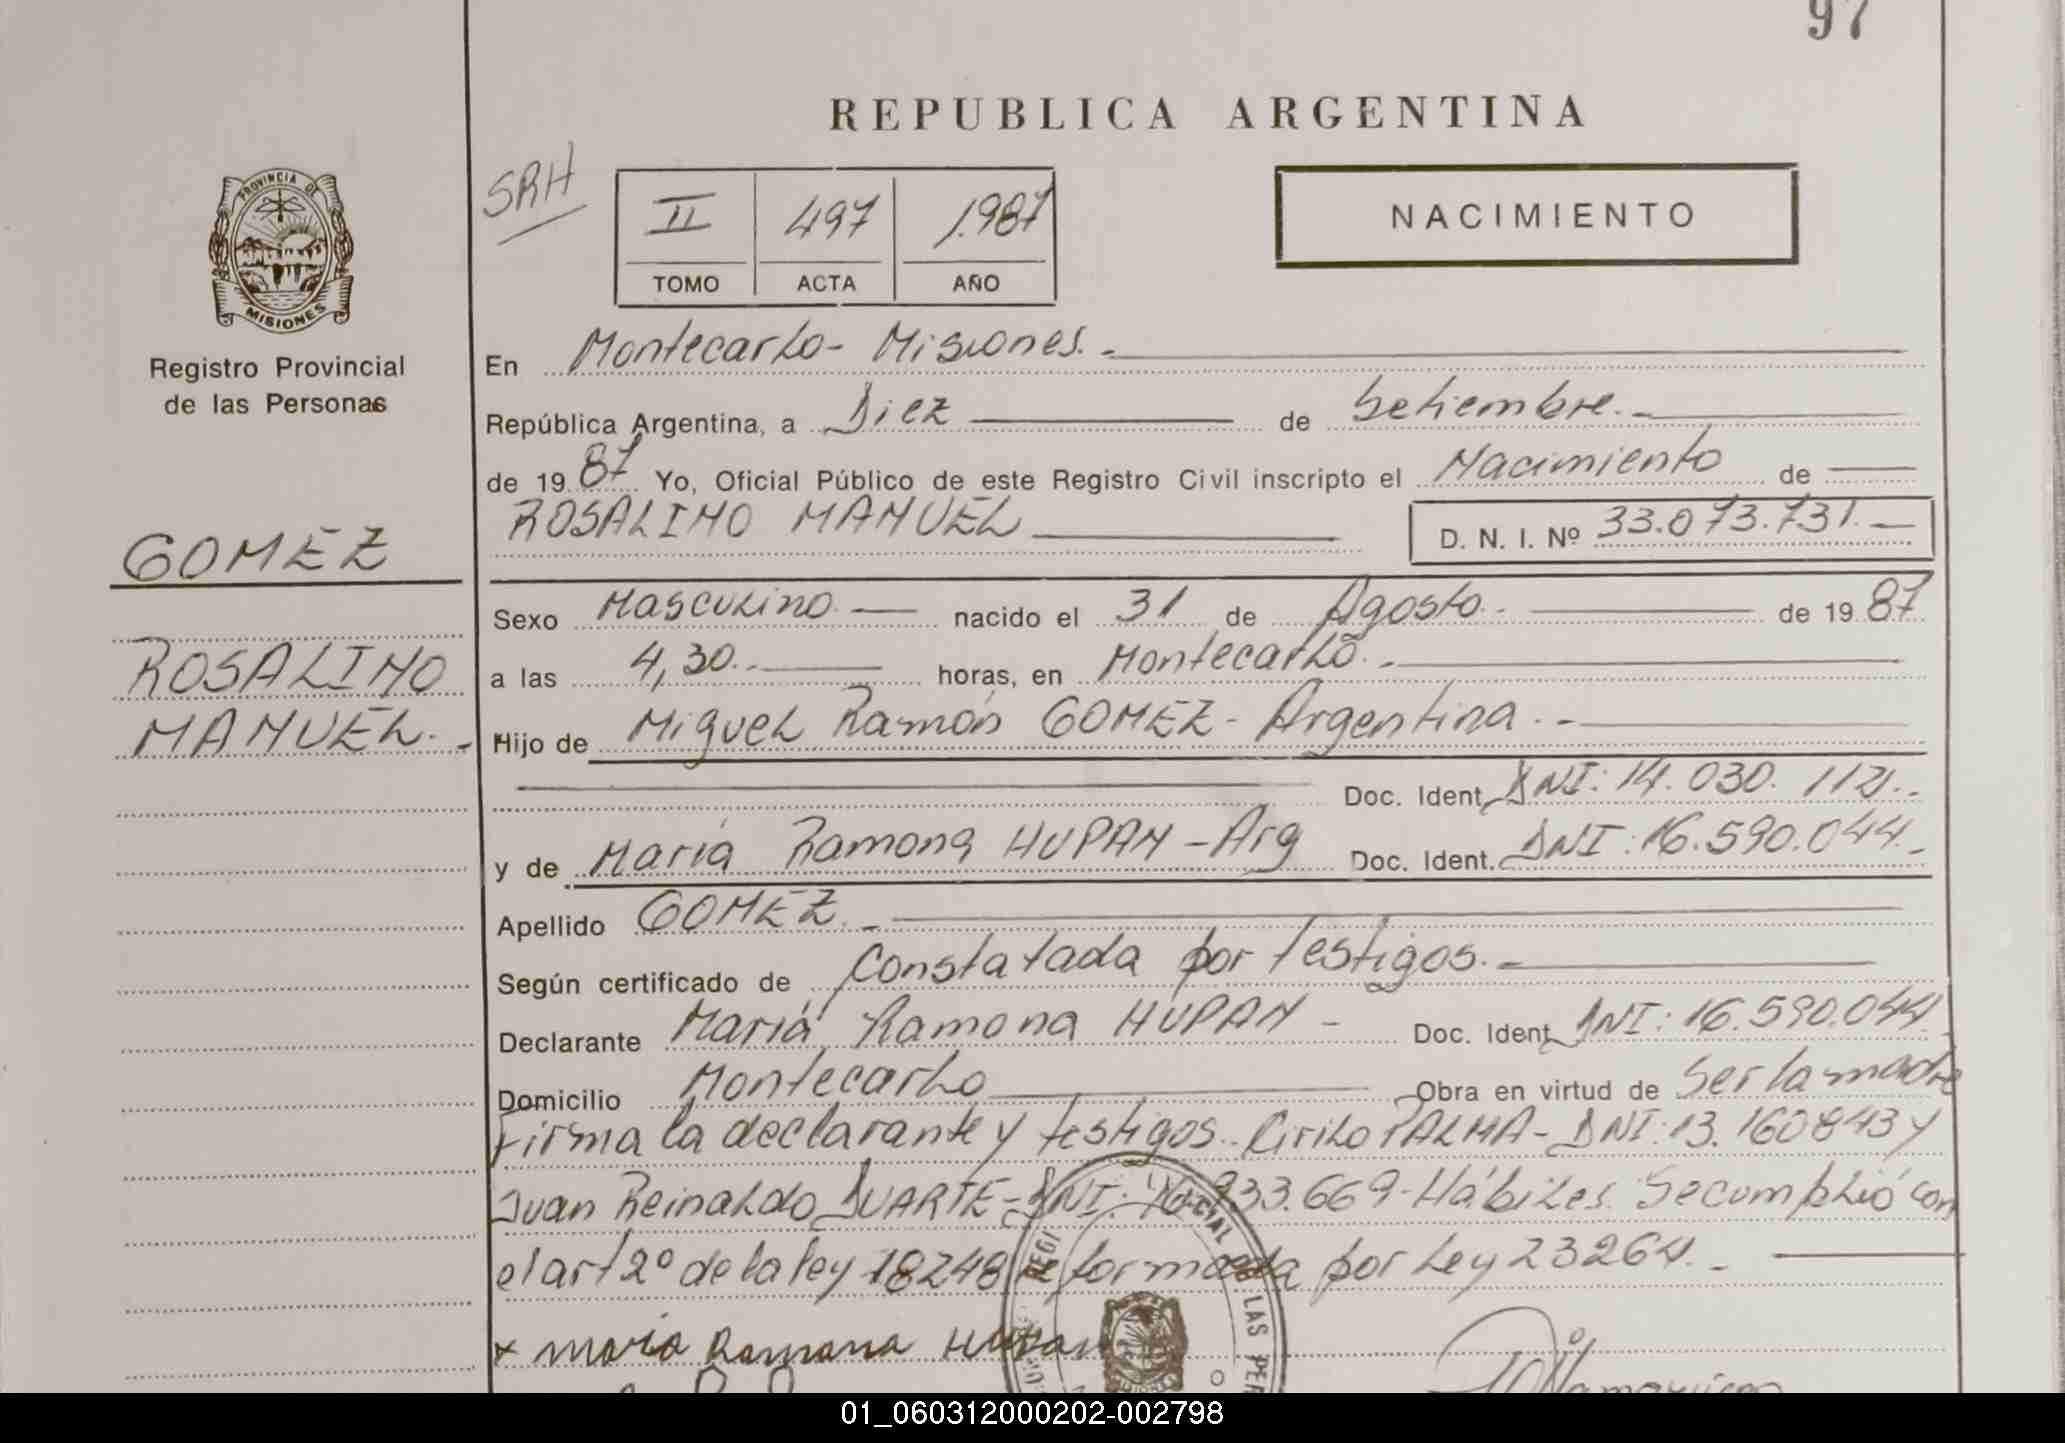 97
REPUBLICA ARGENTINA
PROVINCIA DE
MISIONES
Registro Provincial
de las Personas
SRH
II 497 1.987
TOMO ACTA AÑO
NACIMIENTO
En Montecarlo - Misiones. -
República Argentina, a Diez de Setiembre. -
de 19 87 Yo, Oficial Público de este Registro Civil inscripto el Nacimiento de
ROSALINO MANUEL D. N. I. Nº 33.073.731. -
GOMEZ
ROSALINO
MANUEL. -
Sexo Masculino. - nacido el 31 de Agosto. - de 19 87
a las 4,30. - horas, en Montecarlo. -
Hijo de Miguel Ramón GOMEZ - Argentina. -
Doc. Ident. DNI: 14.030.112. -
y de María Ramona HUPAN - Arg Doc. Ident. DNI: 16.590.044. -
Apellido GOMEZ. -
Según certificado de Constatada por testigos. -
Declarante María Ramona HUPAN - Doc. Ident. DNI: 16.590.044.
Domicilio Montecarlo Obra en virtud de Ser la madre
Firma la declarante y testigos. Cirilo PALMA - DNI: 13.160843 y
Juan Reinaldo DUARTE - DNI: 933.669 - Hábiles. Se cumplió con
el art 2º de la ley 18248 Reformada por Ley 23264. -
x Maria Ramona Hupan
01_060312000202-002798